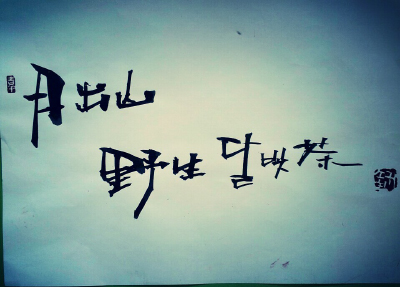 月出山
野生 달빛茶